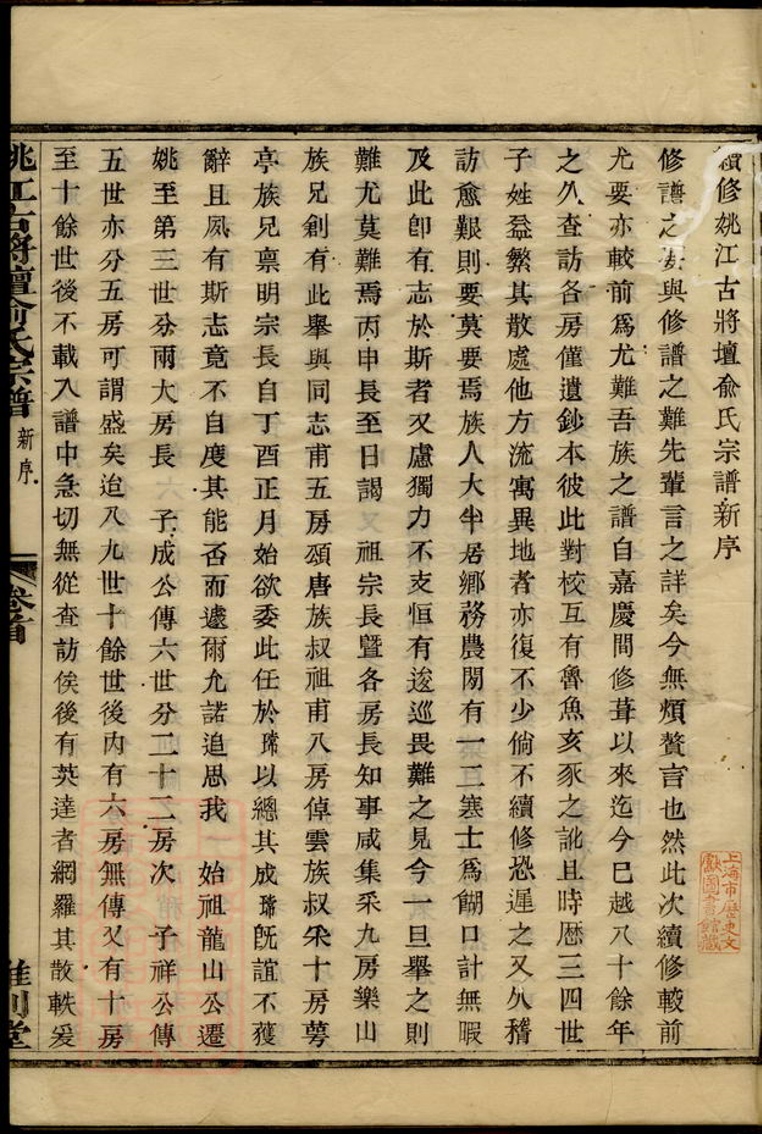 續修姚江古將壇俞氏宗譜新序
修譜之要與修譜之難先輩言之詳矣今無煩贅言也然此次續修較前
尤要亦較前爲尤難吾族之譜自嘉慶間修葺以來迄今已越八十餘年
之久查訪各房僅遺鈔本彼此對校互有魯魚亥豕之訛且時歷三四世
子姓益繁其散處他方流寓異地者亦復不少倘不續修恐遲之又久稽
訪愈艱則要莫要焉族人大半居鄉務農間有一二寒士爲餬口計無暇
及此卽有志於斯者又慮獨力不支恒有逡巡畏難之見今一旦舉之則
難尤莫難焉丙申長至日謁 祖宗長暨各房長知事咸集采九房樂山
族兄創有此舉與同志甫五房頌唐族叔祖甫八房倬雲族叔釆十房蕚
亭族兄禀明宗長自丁酉正月始欲委此任於瑞以總其成瑞旣誼不獲
辭且夙有斯志竟不自度其能否而遽爾允諾追思我 始祖龍山公遷
姚至第三世分兩大房長 子成公傳六世分二十二房次 子祥公傳
五世亦分五房可謂盛矣迨八九世十餘世後內有六房無傳又有十房
至十餘世後不載入譜中急切無從查訪俟後有英達者網羅其散軼爰
姚江古將壇俞氏宗譜
新序
卷首
上海市歷史文
獻圖書館藏